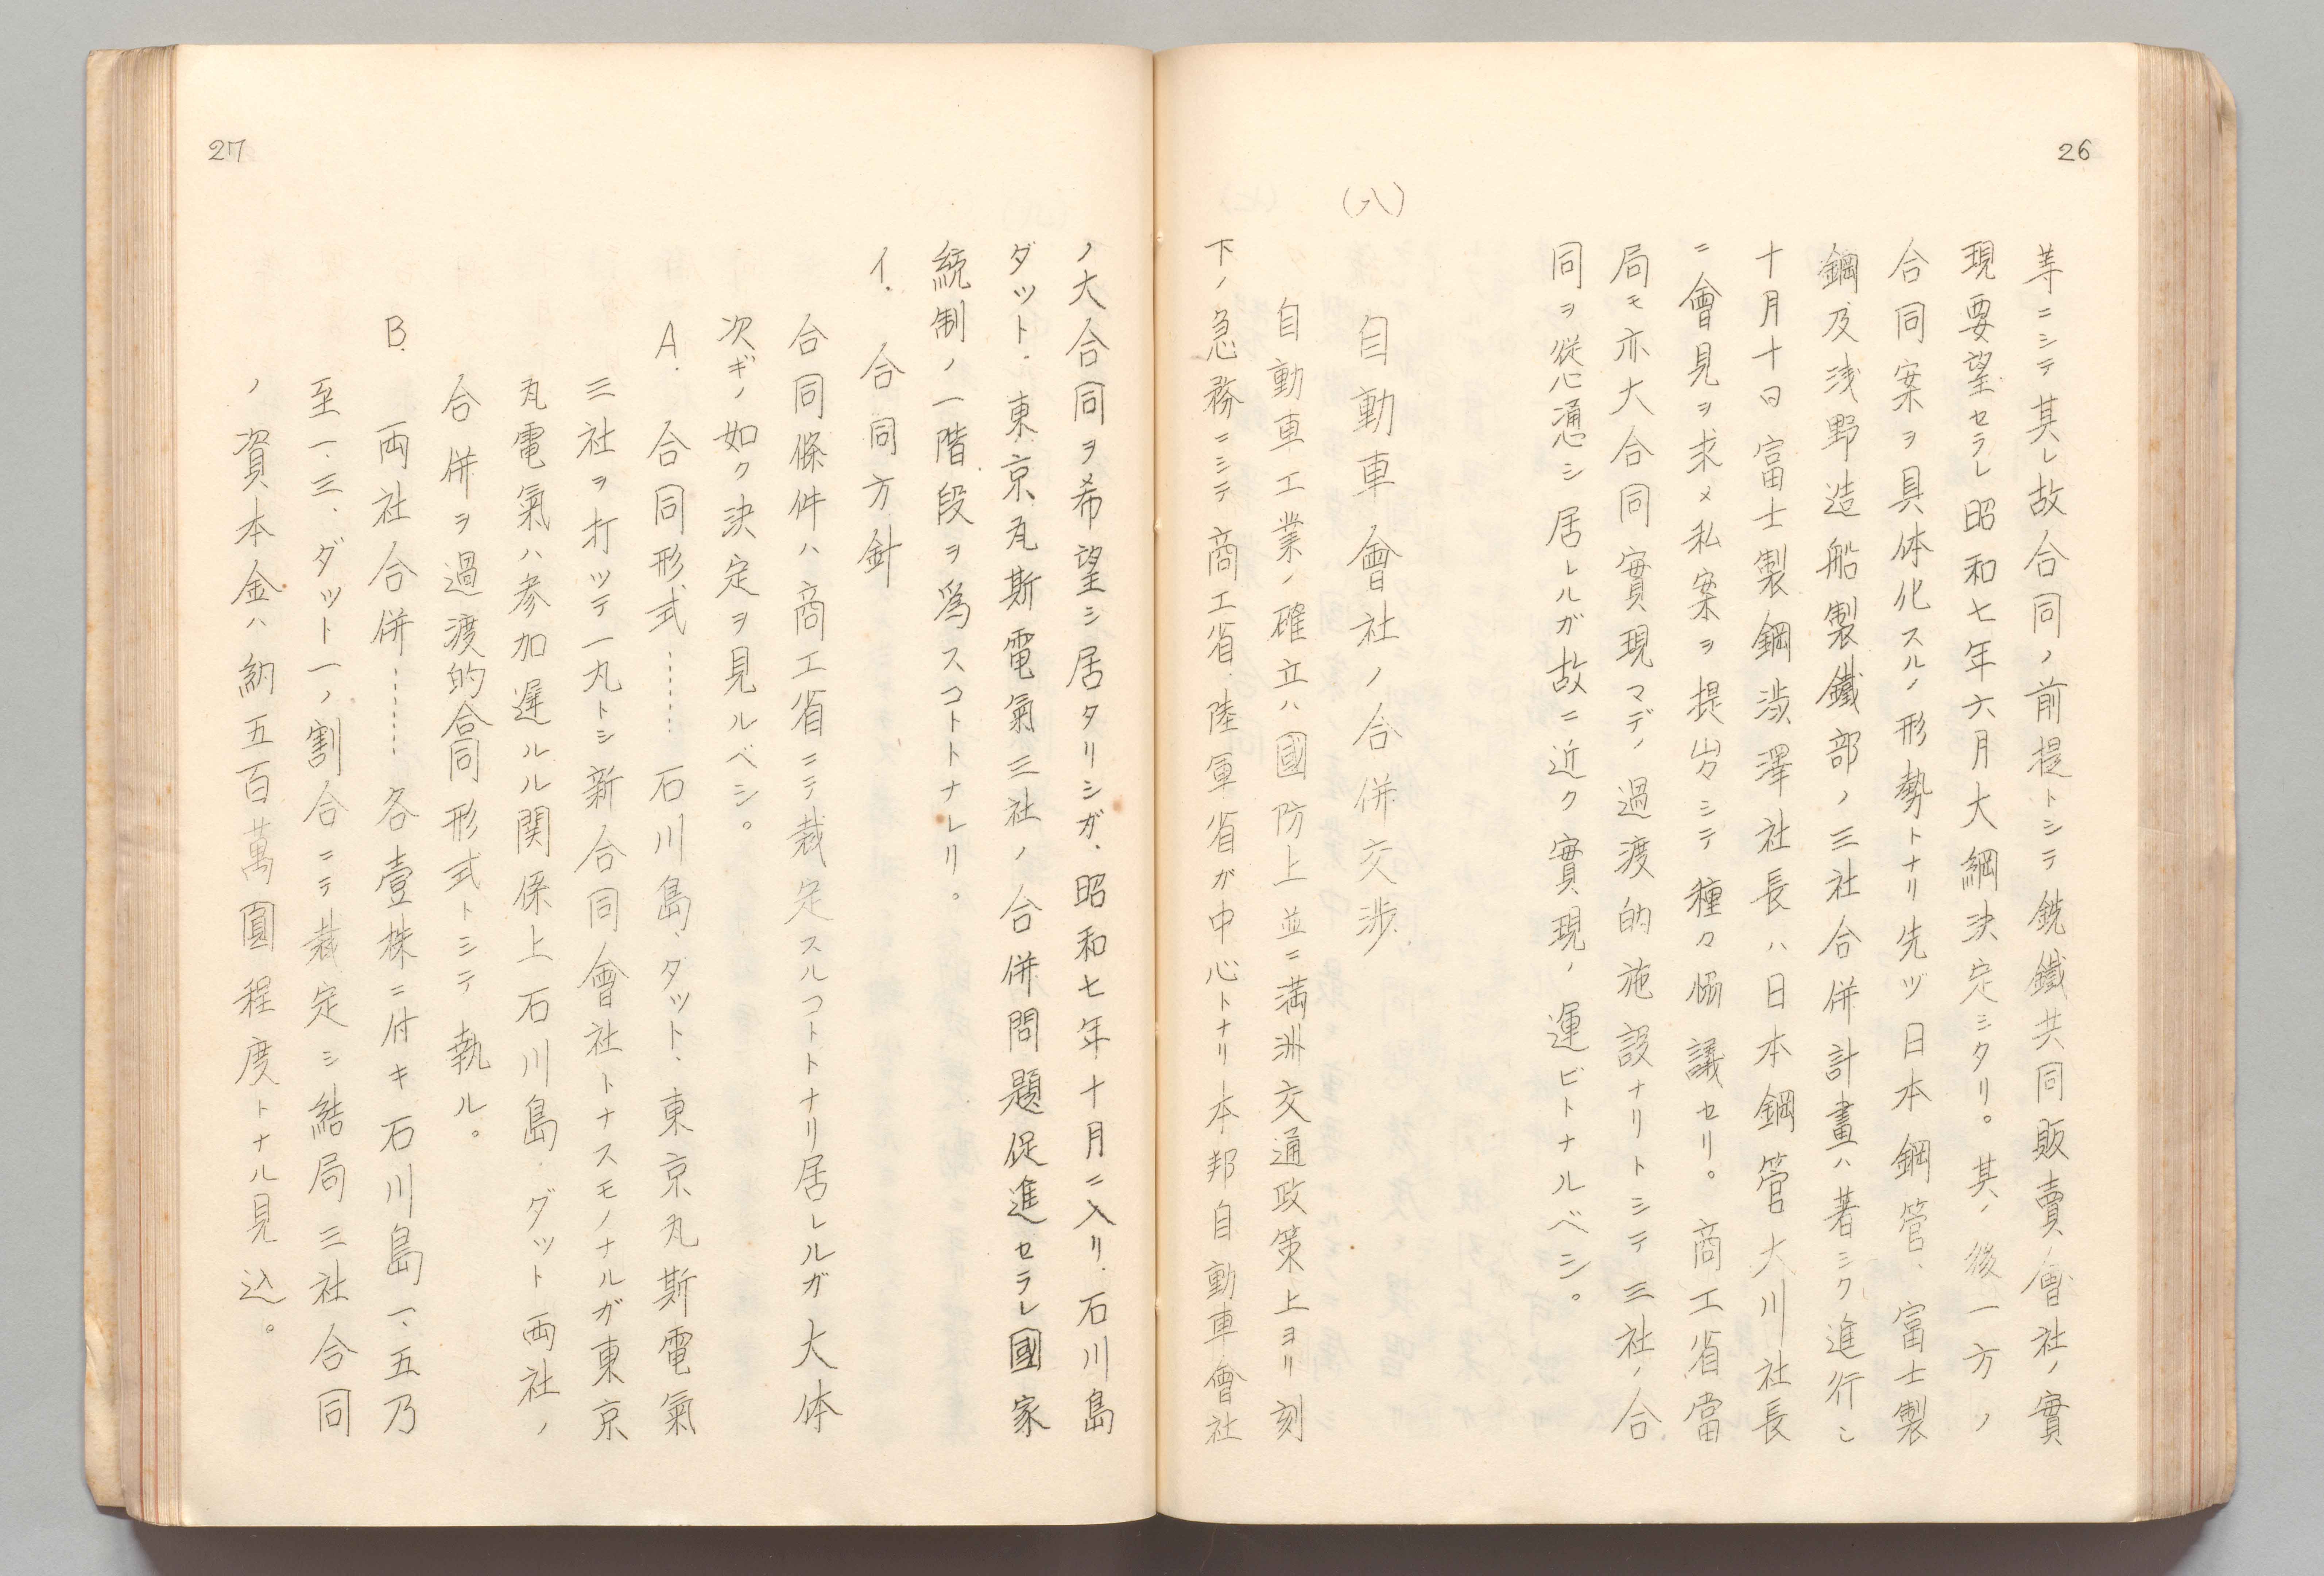 26
等ニシテ其レ故合同ノ前提トシテ銑鐵共同販賣會社ノ實
現要望セラレ昭和七年六月大綱決定シタリ。其ノ後一方ノ
合同案ヲ具体化スルノ形勢トナリ先ヅ日本鋼管、富士製
鋼及浅野造船製鐵部ノ三社合併計畫ハ著シク進行シ
十月十日富士製鋼渋澤社長ハ日本鋼管大川社長
ニ會見ヲ求メ私案ヲ提出シテ種々協議セリ。商工省當
局モ亦大合同實現マデノ過渡的施設ナリトシテ三社ノ合
同ヲ慫慂シ居レルガ故ニ近ク實現ノ運ビトナルベシ。
(八) 自動車會社ノ合併交渉
自動車工業ノ確立ハ國防上並ニ満洲交通政策上ヨリ刻
下ノ急務ニシテ商工省、陸軍省ガ中心トナリ本邦自動車會社
27
ノ大合同ヲ希望シ居タリシガ、昭和七年十月ニ入リ、石川島
ダット、東京瓦斯電氣三社ノ合併問題促進セラレ國家
統制ノ一階段ヲ爲スコトトナレリ。
イ. 合同方針
合同條件ハ商工省ニテ裁定スルコトトナリ居レルガ大体
次ギノ如ク決定ヲ見ルベシ。
A. 合同形式……石川島、ダット、東京瓦斯電氣
三社ヲ打ツテ一丸トシ新合同會社トナスモノナルガ東京
瓦電氣ハ参加遲ルル関係上石川島、ダット両社ノ
合併ヲ過渡的合同形式トシテ執ル。
B. 両社合併……各壹株ニ付キ石川島一、五乃
至一、三、ダット一ノ割合ニテ裁定シ結局三社合同
ノ資本金ハ納五百萬圓程度トナル見込。